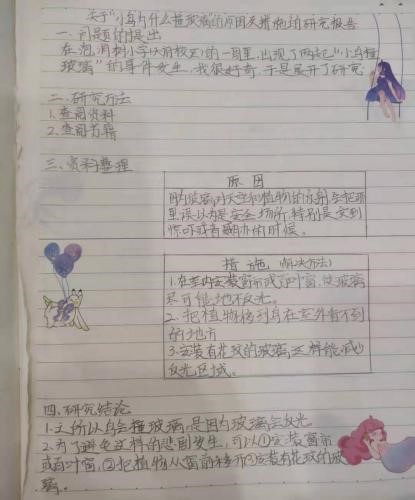 关于“小鸟为什么撞玻璃”的原因及措施的研究报告
一、问题的提出
在泡桐树小学以前校区的一周里,出现了两起“小鸟撞
玻璃”的事件发生,我很好奇,于是展开了研究
二、研究方法
1.查阅资料
2.查阅书籍
三、资料整理
原因
因为玻璃对天空和植物的反射,会把那
里误以为是安全场所,特别是受到
惊吓或者
的时候。
措施(解决方法)
1.在室内安装窗帘或百叶窗,使玻璃
尽可能地不反光。
2.把植物移到鸟在室外看不到
的地方
3.安装有花纹的玻璃,这样能减少
反光区域。
四、研究结论
1.之所以鸟会撞玻璃,是因为玻璃会反光。
2.为了避免这样的悲剧发生,可以①安装窗帘
或百叶窗,②把植物从窗前移开③安装有花纹的玻
璃。